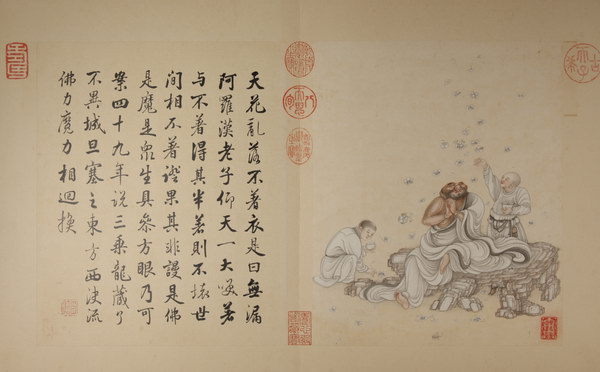 天花亂落不著衣是曰無漏
阿羅漢老子仰天一大咲著
与不著得其半著則不壞世
間相不著證果其非謾是佛
是魔是眾生具叅方眼乃可
案四十九年说三乘龍藏了
不異城旦塞之東方西決流
佛力魔力相迴換